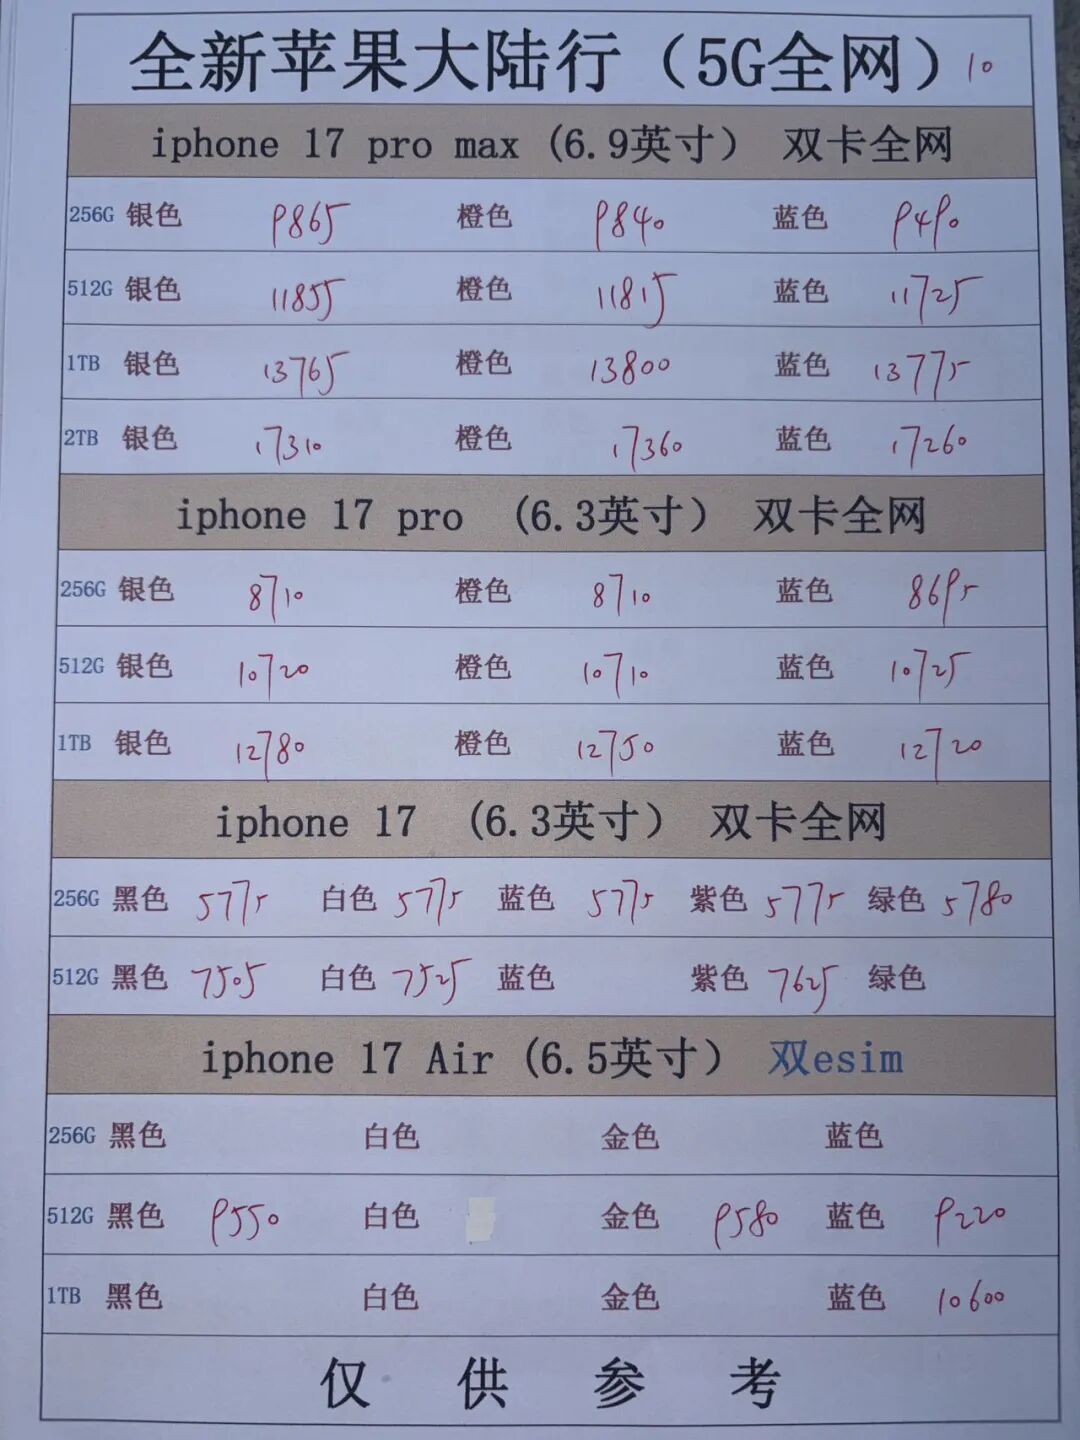 全新苹果大陆行（5G全网）10
iphone 17 pro max (6.9英寸） 双卡全网
256G 银色 9865 橙色 9840 蓝色 9490
512G 银色 11855 橙色 11815 蓝色 11725
1TB 银色 13765 橙色 13800 蓝色 13775
2TB 银色 17310 橙色 17360 蓝色 17260
iphone 17 pro (6.3英寸） 双卡全网
256G 银色 8710 橙色 8710 蓝色 8695
512G 银色 10720 橙色 10710 蓝色 10725
1TB 银色 12780 橙色 12750 蓝色 12720
iphone 17 (6.3英寸） 双卡全网
256G 黑色 5775 白色 5775 蓝色 5775 紫色 5775 绿色 5780
512G 黑色 7505 白色 7525 蓝色 紫色 7625 绿色
iphone 17 Air (6.5英寸） 双esim
256G 黑色 白色 金色 蓝色
512G 黑色 9550 白色 金色 9580 蓝色 9220
1TB 黑色 白色 金色 蓝色 10600
仅供参考